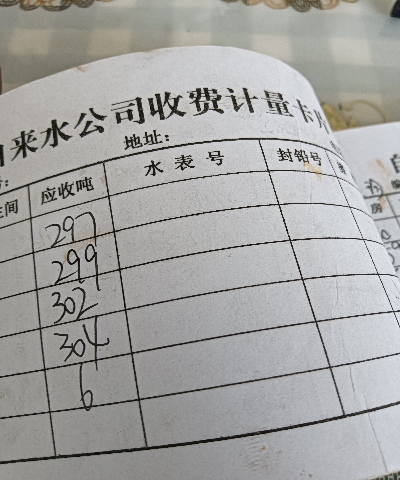 来水公司收费计量卡
地址:
间 应收吨 水表号 封铅号
297
299
302
304
6